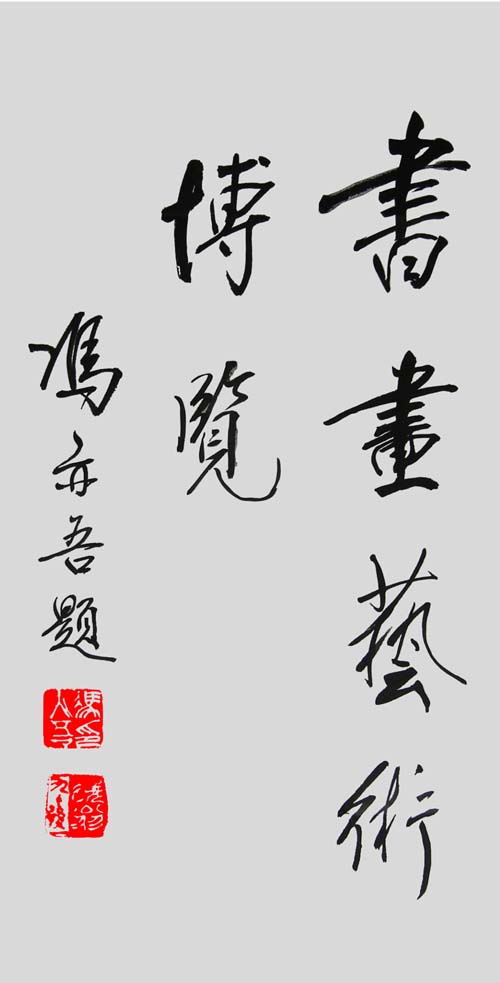 書畫藝術
博覽
馮亦吾題